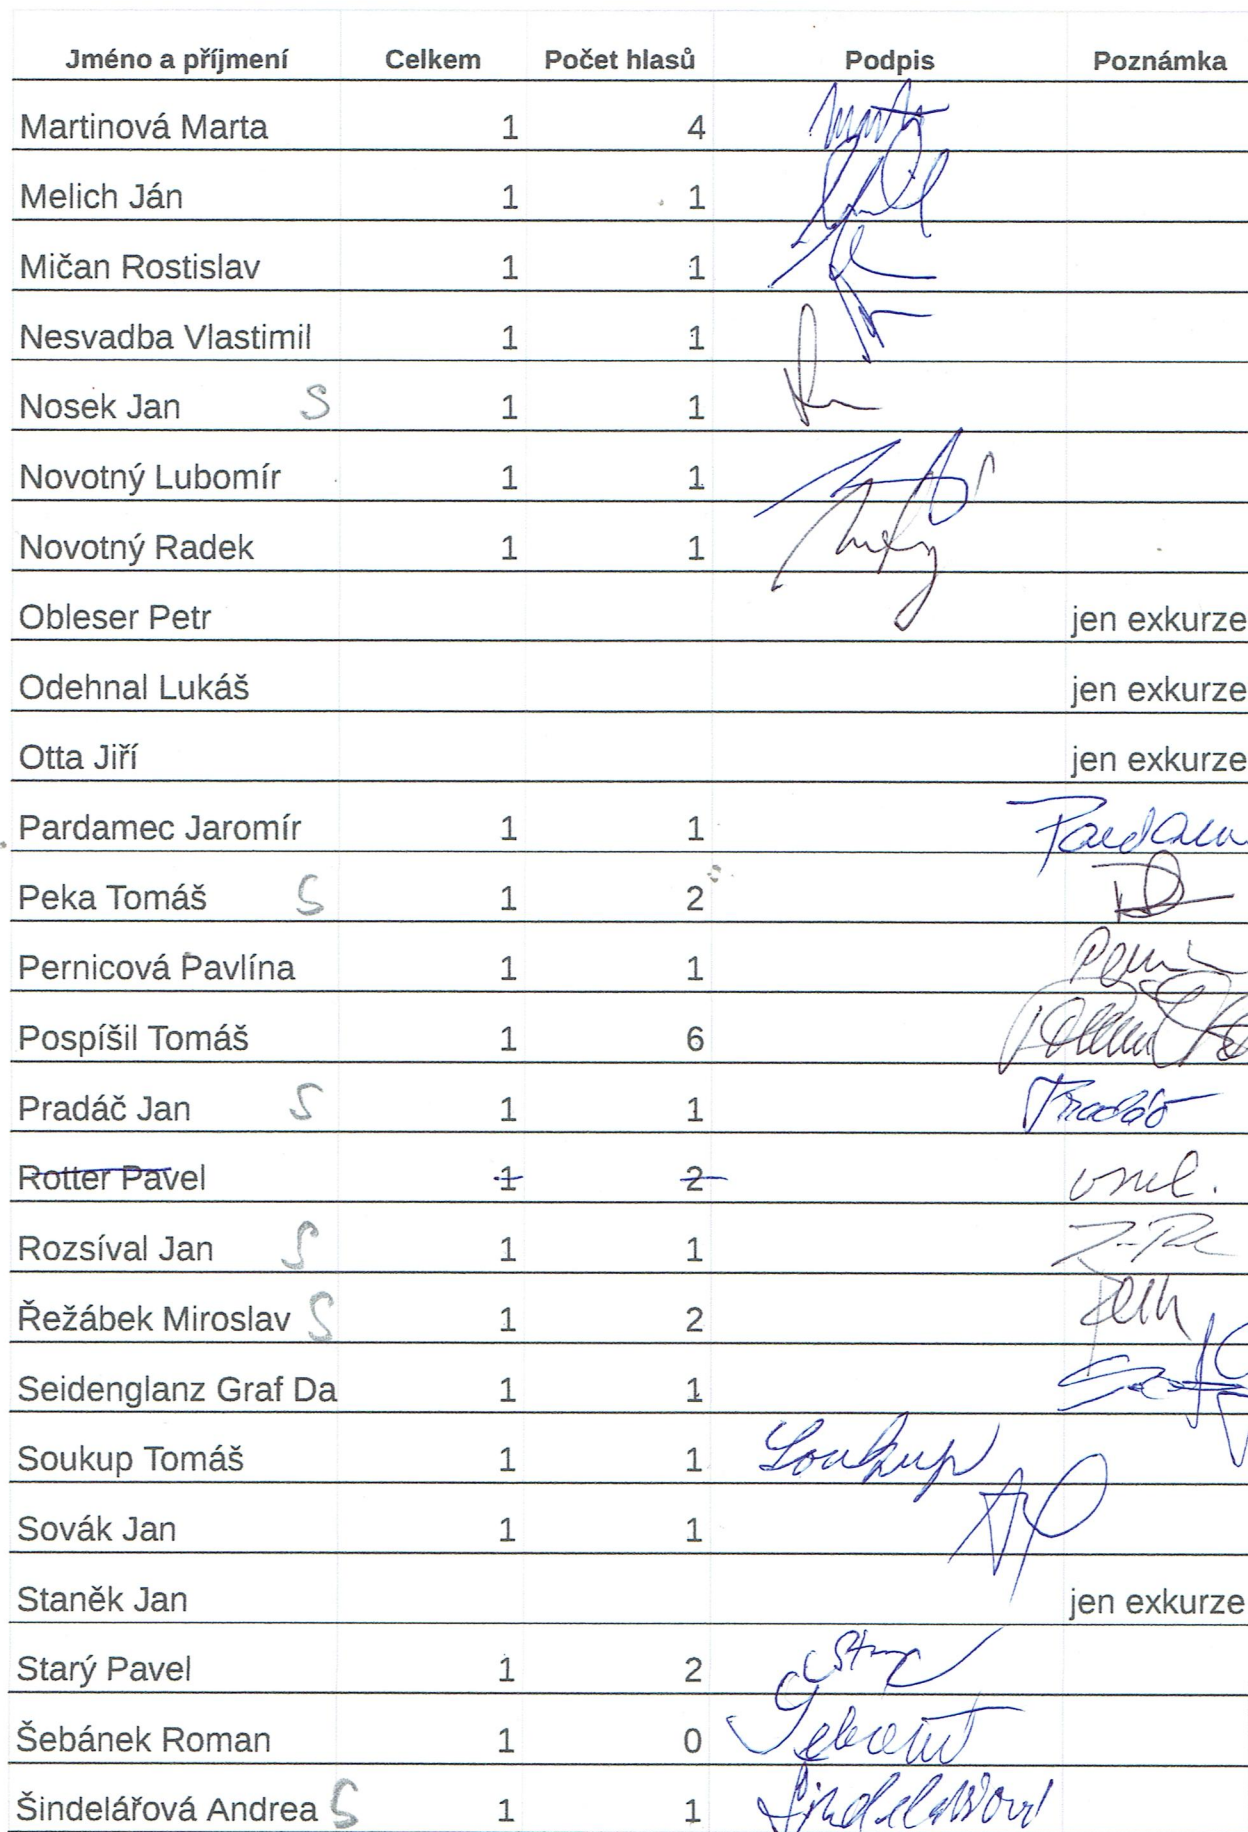 Jméno a příjmení Celkem Počet hlasů Podpis Poznámka
Martinová Marta 1 4
Melich Ján 1 1
Mičan Rostislav 1 1
Nesvadba Vlastimil 1 1
Nosek Jan S 1 1
Novotný Lubomír 1 1
Novotný Radek 1 1
Obleser Petr jen exkurze
Odehnal Lukáš jen exkurze
Otta Jiří jen exkurze
Pardamec Jaromír 1 1
Peka Tomáš S 1 2
Pernicová Pavlína 1 1
Pospíšil Tomáš 1 6
Pradáč Jan S 1 1 Pradáč
Rotter Pavel 1 2
Rozsíval Jan S 1 1
Řežábek Miroslav S 1 2
Seidenglanz Graf Da 1 1
Soukup Tomáš 1 1 Soukup
Sovák Jan 1 1
Staněk Jan jen exkurze
Starý Pavel 1 2
Šebánek Roman 1 0
Šindelářová Andrea S 1 1 Šindelářová